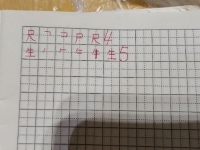 尺 ㇕ コ 尸 尺 4
生 丿 𠂉 牛 生 5